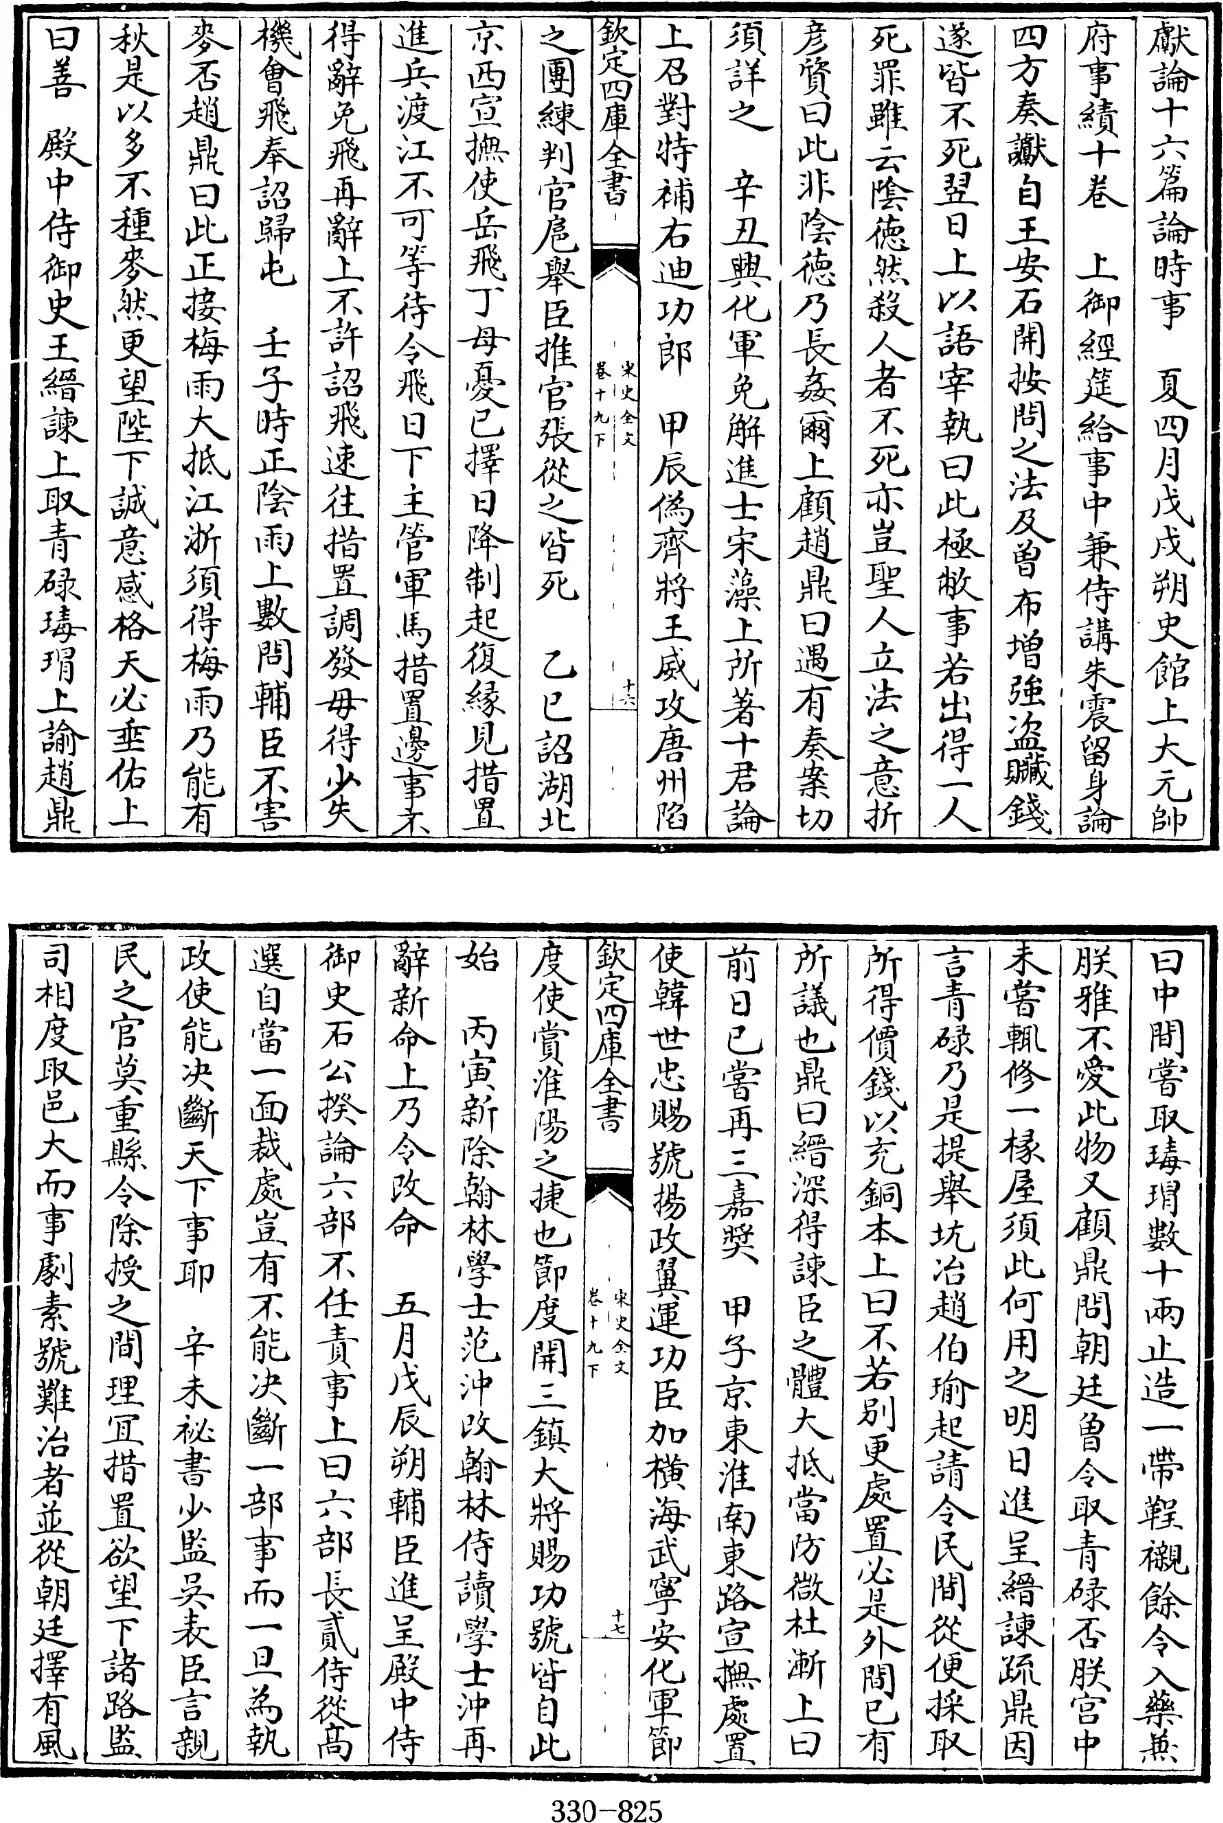 獻論十六篇論時事　夏四月戊戌朔史館上大元帥
府事績十卷　上御經筵給事中兼侍講朱震留身論
四方奏讞自王安石開按問之法及曾布增強盜贓錢
遂皆不死翌日上以語宰執曰此極敝事若出得一人
死罪雖云陰德然殺人者不死亦豈聖人立法之意折
彦質曰此非陰德乃長姦爾上顧趙鼎曰遇有奏案切
須詳之　辛丑興化軍免解進士宋藻上所著十君論
上召對特補右迪功郎　甲辰偽齊將王威攻唐州陷
欽定四庫全書
宋史全文
卷十九下
十六
之團練判官扈舉臣推官張從之皆死　乙巳詔湖北
京西宣撫使岳飛丁母憂已擇日降制起復緣見措置
進兵渡江不可等待令飛日下主管軍馬措置邊事不
得辭免飛再辭上不許詔飛速往措置調發毋得少失
機會飛奉詔歸屯　壬子時正陰雨上數問輔臣不害
麥否趙鼎曰此正接梅雨大抵江浙須得梅雨乃能有
秋是以多不種麥然更望陛下誠意感格天必垂佑上
曰善　殿中侍御史王縉諫上取青碌瑇瑁上諭趙鼎
曰中間嘗取瑇瑁數十兩止造一帶鞓襯餘令入藥兼
朕雅不愛此物又顧鼎問朝廷曾令取青碌否朕宮中
未嘗輒修一椽屋須此何用之明日進呈縉諫疏鼎因
言青碌乃是提舉坑冶趙伯瑜起請令民間從便採取
所得價錢以充銅本上曰不若别更處置必是外間已有
所議也鼎曰縉深得諫臣之體大抵當防微杜漸上曰
前日已嘗再三嘉奬　甲子京東淮南東路宣撫處置
使韓世忠賜號揚武翼運功臣加橫海武寧安化軍節
欽定四庫全書
宋史全文
卷十九下
十七
度使賞淮陽之捷也節度開三鎮大將賜功號皆自此
始　丙寅新除翰林學士范沖改翰林侍讀學士沖再
辭新命上乃令改命　五月戊辰朔輔臣進呈殿中侍
御史石公揆論六部不任責事上曰六部長貳侍從高
選自當一面裁處豈有不能决斷一部事而一旦為執
政使能决斷天下事耶　辛未祕書少監吳表臣言親
民之官莫重縣令除授之間理宜措置欲望下諸路監
司相度取邑大而事劇素號難治者並從朝廷擇有風
330-825